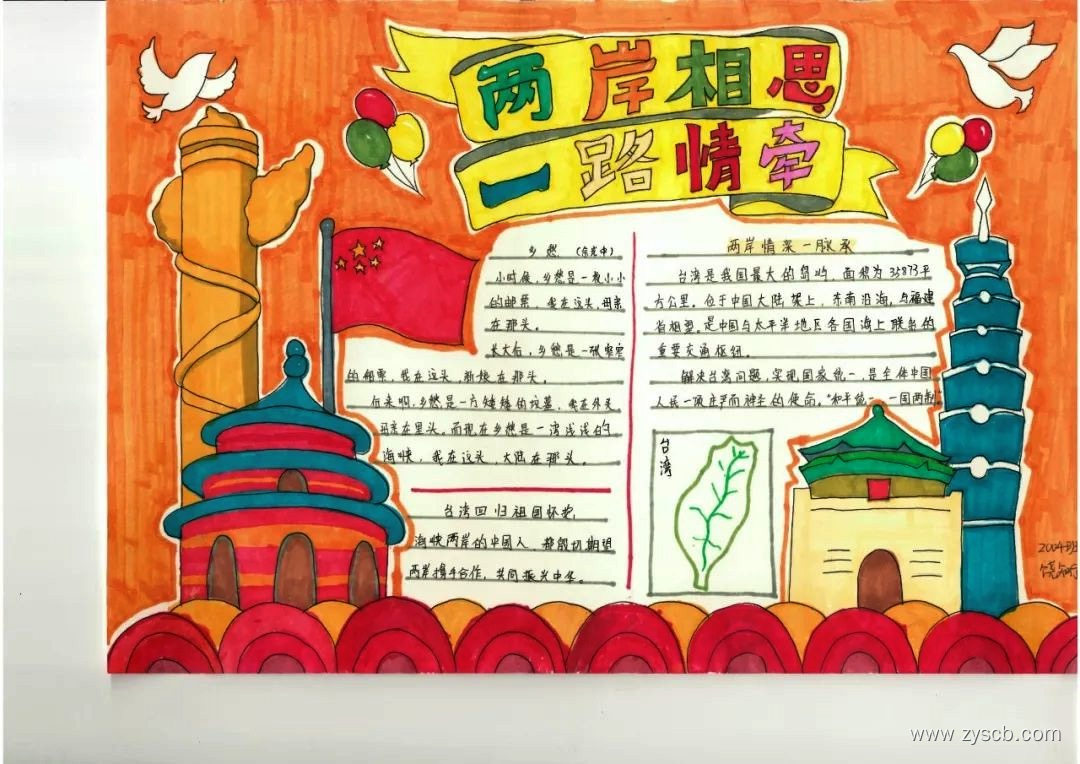 两岸相思
一路情牵
乡愁 (余光中)
小时候,乡愁是一枚小小
的邮票,我在这头,母亲
在那头。
长大后,乡愁是一张窄窄
的船票,我在这头,新娘在那头。
后来啊,乡愁是一方矮矮的坟墓,我在外头
母亲在里头。而现在乡愁是一湾浅浅的
海峡,我在这头,大陆在那头。
台湾回归祖国怀抱
海峡两岸的中国人 都殷切期望
两岸携手合作,共同振兴中华。
两岸情深一脉承
台湾是我国最大的岛屿,面积为35873平
方公里。位于中国大陆架上,东南沿海,与福建
省相望。是中国与太平洋地区各国海上联系的
重要交通枢纽。
解决台湾问题,实现国家统一,是全体中国
人民一项庄严而神圣的使命。"和平统一,一国两制"
台湾
2004班
www.zyscb.com